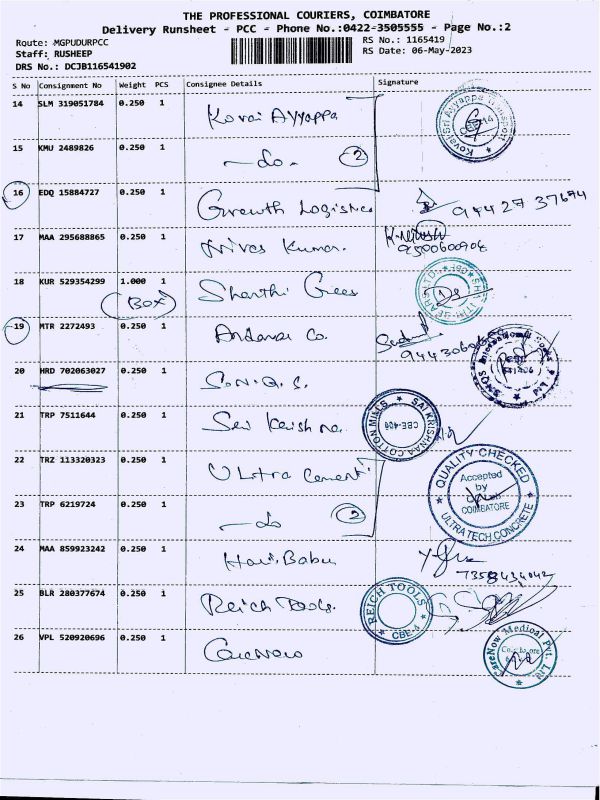 THE PROFESSIONAL COURIERS, COIMBATORE
Delivery Runsheet - PCC - Phone No.:0422-3505555 - Page No.:2
Route: MGPUDURPCC
Staff: RUSHEEP
DRS No.: DCJB116541902
RS No.: 1165419
RS Date: 06-May-2023
S No Consignment No Weight PCS Consignee Details Signature
14 SLM 319051784 0.250 1 Kovai Ayyappa
15 KMU 2489826 0.250 1 - do - 2
16 EDQ 15884727 0.250 1 Growth Logistics 94427 37674
17 MAA 295688865 0.250 1 Kumar. 9500600906
18 KUR 529354299 1.000 1 Shanthi Gears
(BOX)
19 MTR 2272493 0.250 1 Co.
20 HRD 702063027 0.250 1 S.N.Q.S. SNQS International
21 TRP 7511644 0.250 1 Sai Krishna SAI KRISHNAA COTTON MILLS CBE-406
22 TRZ 113320323 0.250 1 Ultra Cement QUALITY CHECKED
Accepted
by
COIMBATORE
ULTRATECH CONCRETE
23 TRP 6219724 0.250 1 - do 2
24 MAA 859923242 0.250 1 Hari Babu
7358434042
25 BLR 280377674 0.250 1 Reich Tools. REICH TOOLS CBE-6
26 VPL 520920696 0.250 1 Carenow CareNow Medical Pvt. Ltd
Coimbatore